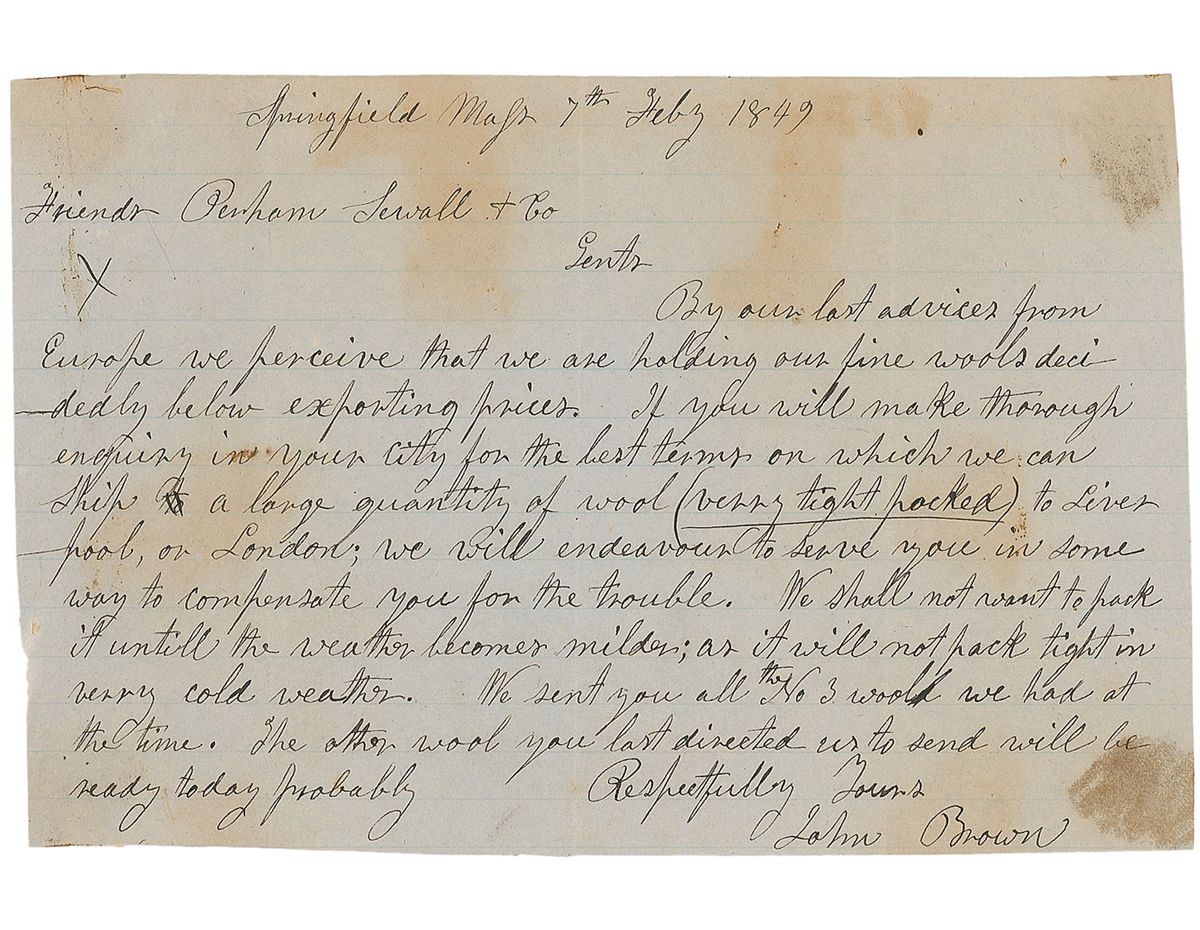 Springfield Mass 7th Feby 1849
Friends Perham Sewall & Co
Gents
X
By our last advices from
Europe we perceive that we are holding our fine wools deci
dedly below exporting prices. If you will make thorough
enquiry in your city for the best terms on which we can
ship a large quantity of wool (verry tight packed) to Liver
pool, or London; we will endeavour to serve you in some
way to compensate you for the trouble. We shall not want to pack
it untill the weather becomes milder; as it will not pack tight in
verry cold weather. We sent you all the No 3 wool we had at
the time. The other wool you last directed us to send will be
ready today probably Respectfully Yours
John Brown